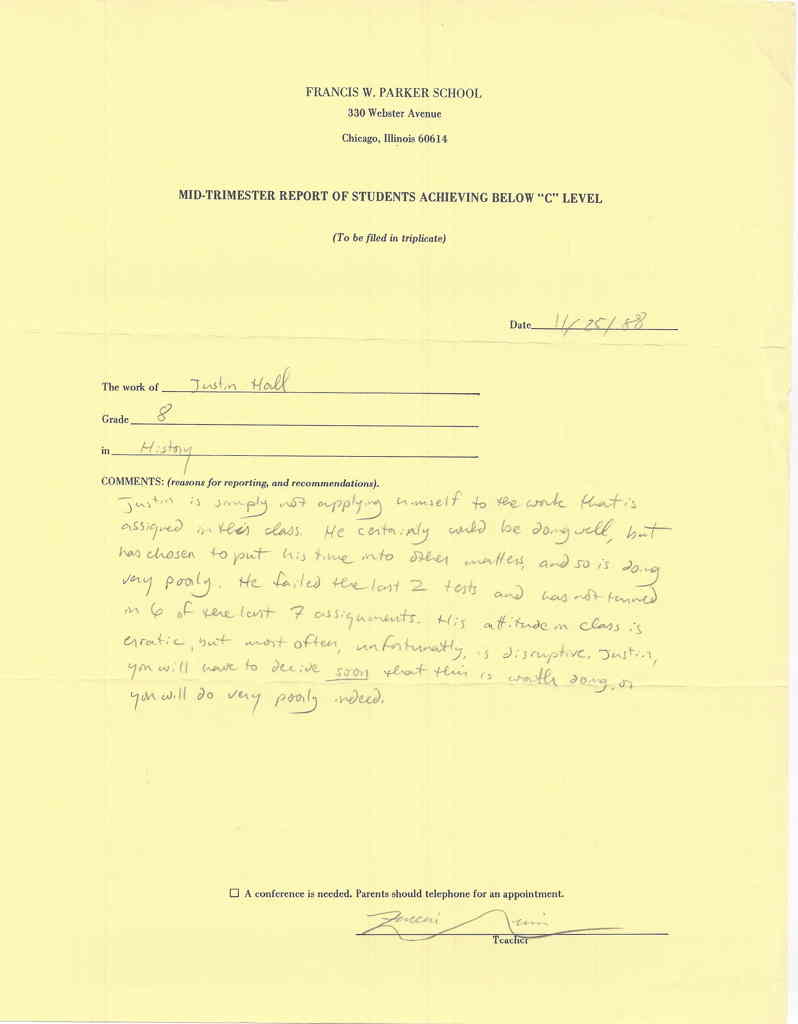 FRANCIS W. PARKER SCHOOL
330 Webster Avenue
Chicago, Illinois 60614
MID-TRIMESTER REPORT OF STUDENTS ACHIEVING BELOW "C" LEVEL
(To be filed in triplicate)
Date 11/25/88
The work of Justin Hall
Grade 8
in History
COMMENTS: (reasons for reporting, and recommendations).
Justin is simply not applying himself to the work that is
assigned in this class. He certainly could be doing well, but
has chosen to put his time into other matters, and so is doing
very poorly. He failed the last 2 tests and has not turned
in 6 of the last 7 assignments. His attitude in class is
erratic, but most often, unfortunatly, is disruptive. Justin,
you will have to decide soon that this is worth doing, or
you will do very poorly indeed.
☐ A conference is needed. Parents should telephone for an appointment.
Teacher